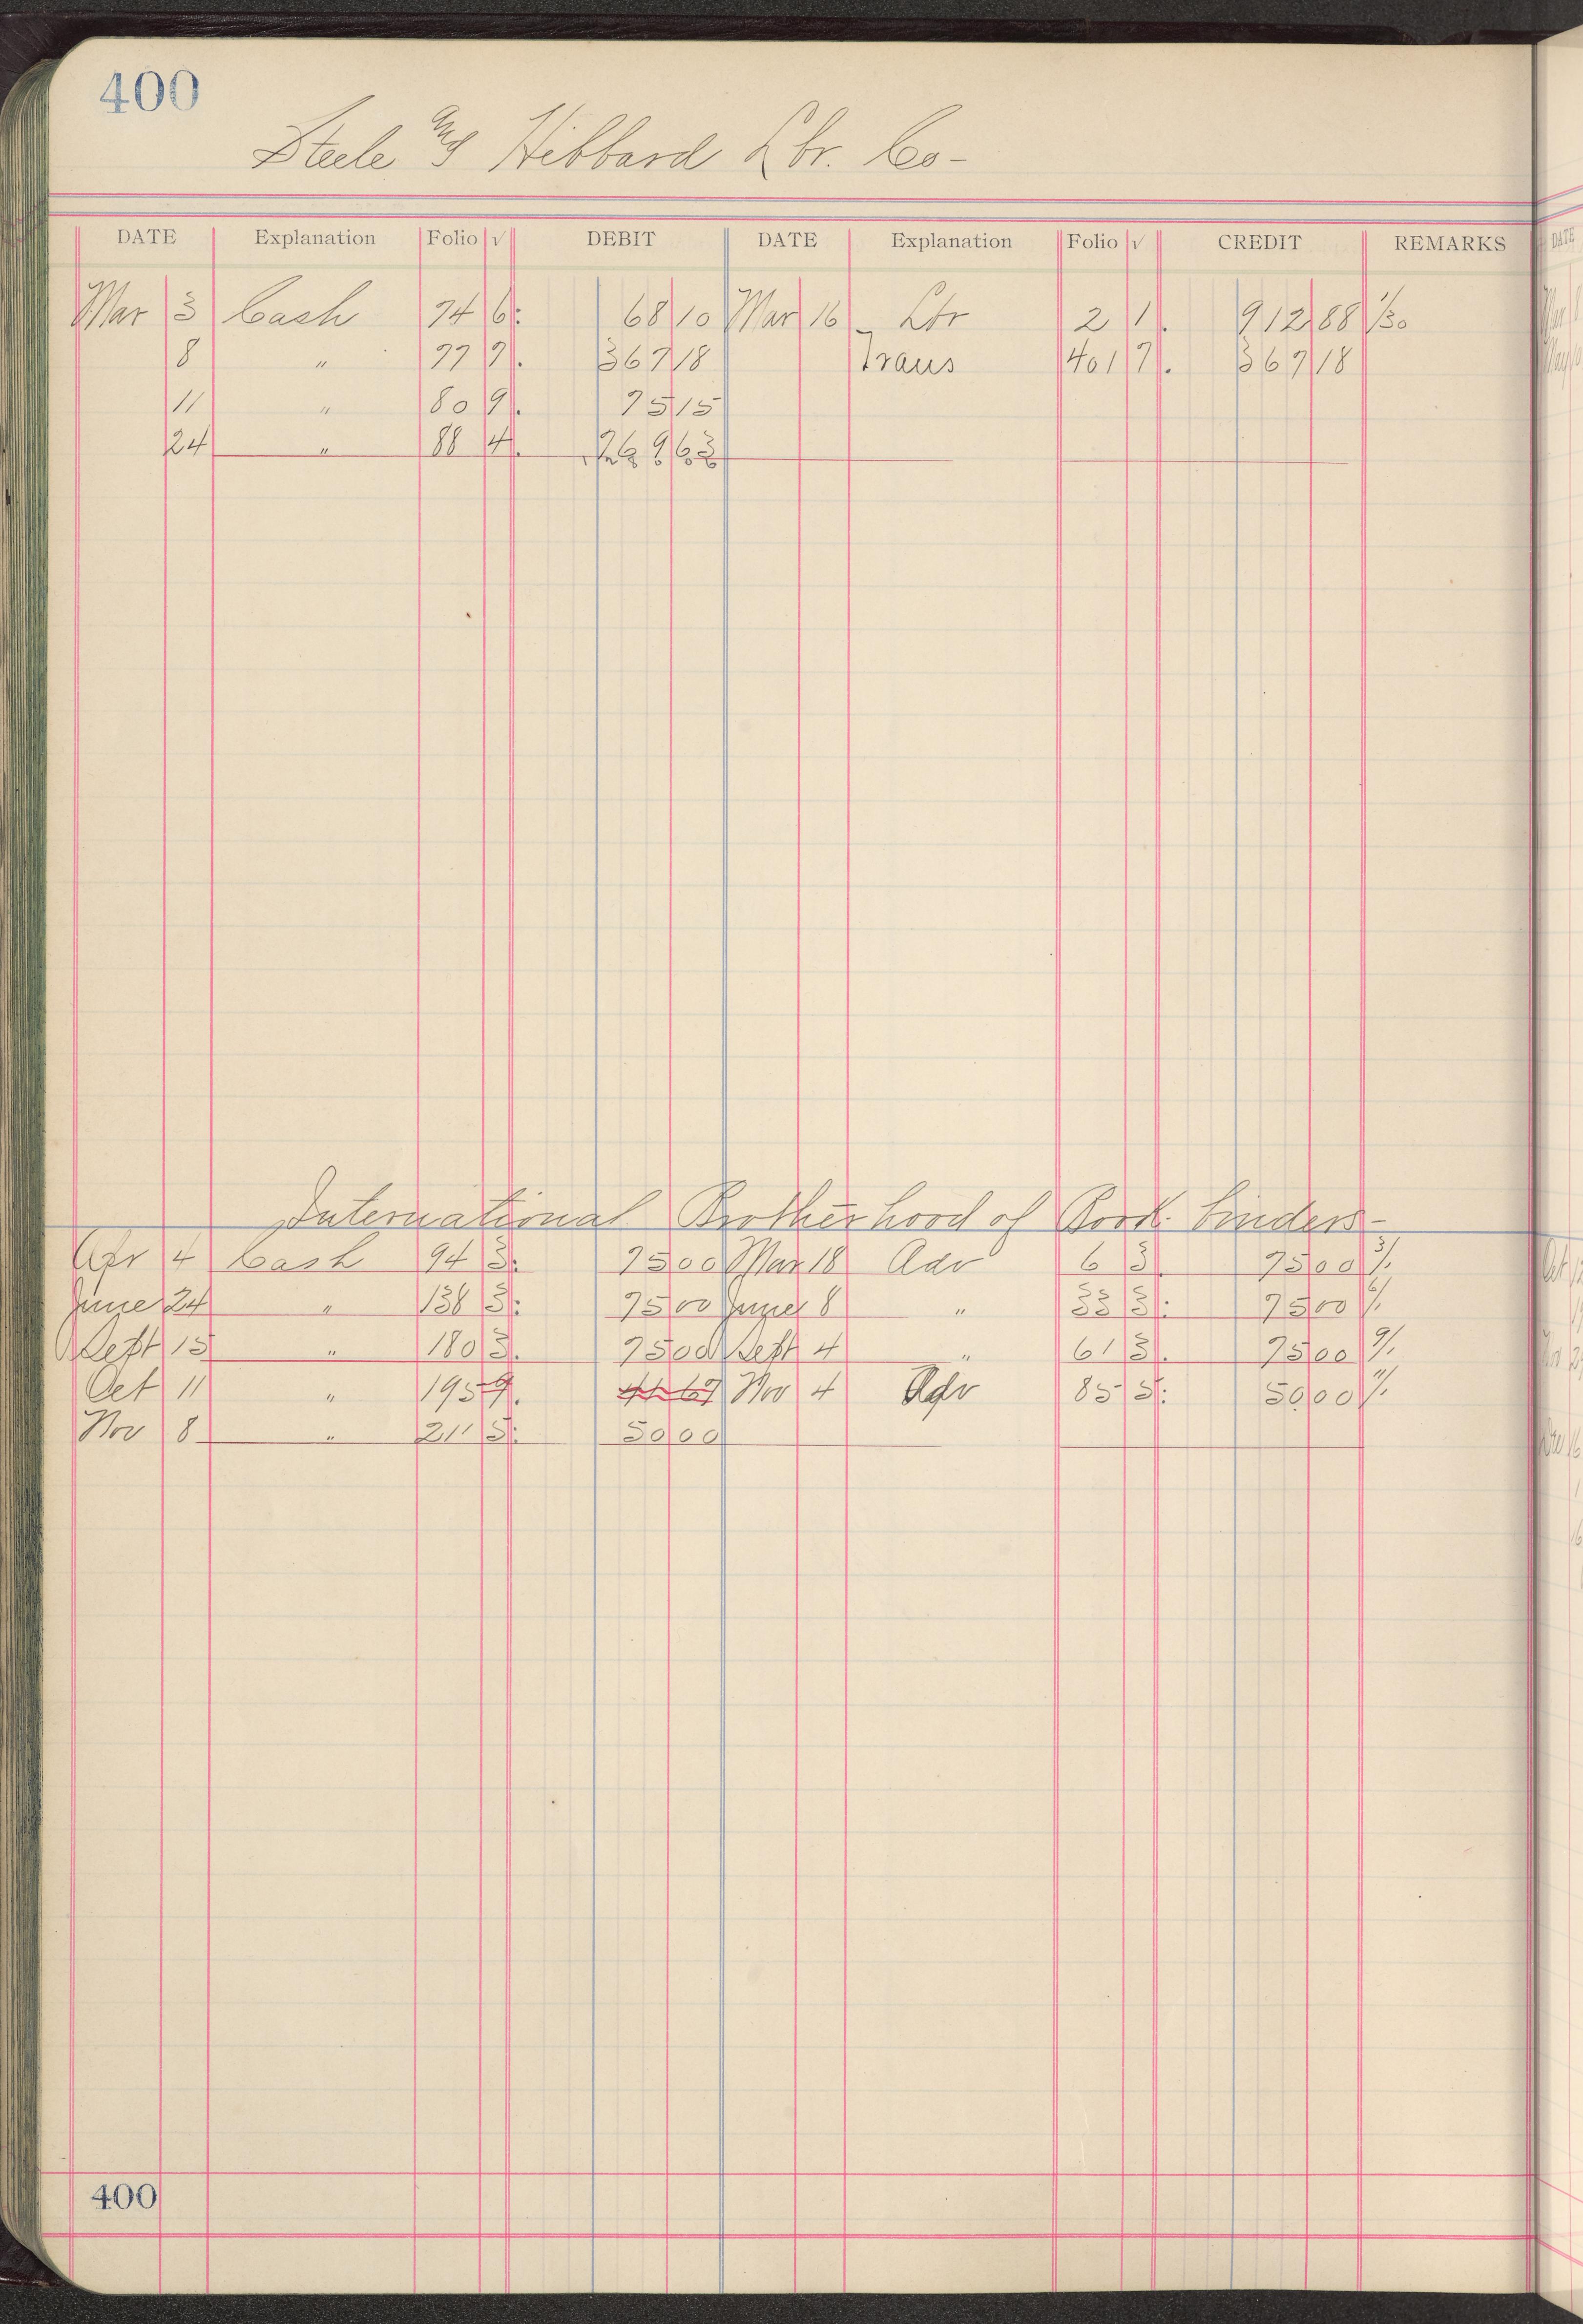 400
Steele and Hibbard Lbr. Co-
DATE Explanation Folio √ DEBIT DATE Explanation Folio √ CREDIT REMARKS
Mar 3 Cash 74 6: 68 10 Mar 16 Lbr 2 1. 912 88 1/30
8 " 77 7. 367 18 Trans 401 7. 367 18
11 " 80 9. 75 15
24 " 88 4.
International Brotherhood of Book binders-
Apr 4 Cash 94 3: 75 00 Mar 18 Adv 6 3. 75 00 3/1
June 24 " 138 3: 75 00 June 8 " 33 3: 75 00 6/1
Sept 15 " 180 3. 75 00 Sept 4 " 61 3. 75 00 9/1
Oct 11 " 195 9. 41 67 Nov 4 Adv 85 5: 50 00 11/1
Nov 8 " 211 5: 50 00
400